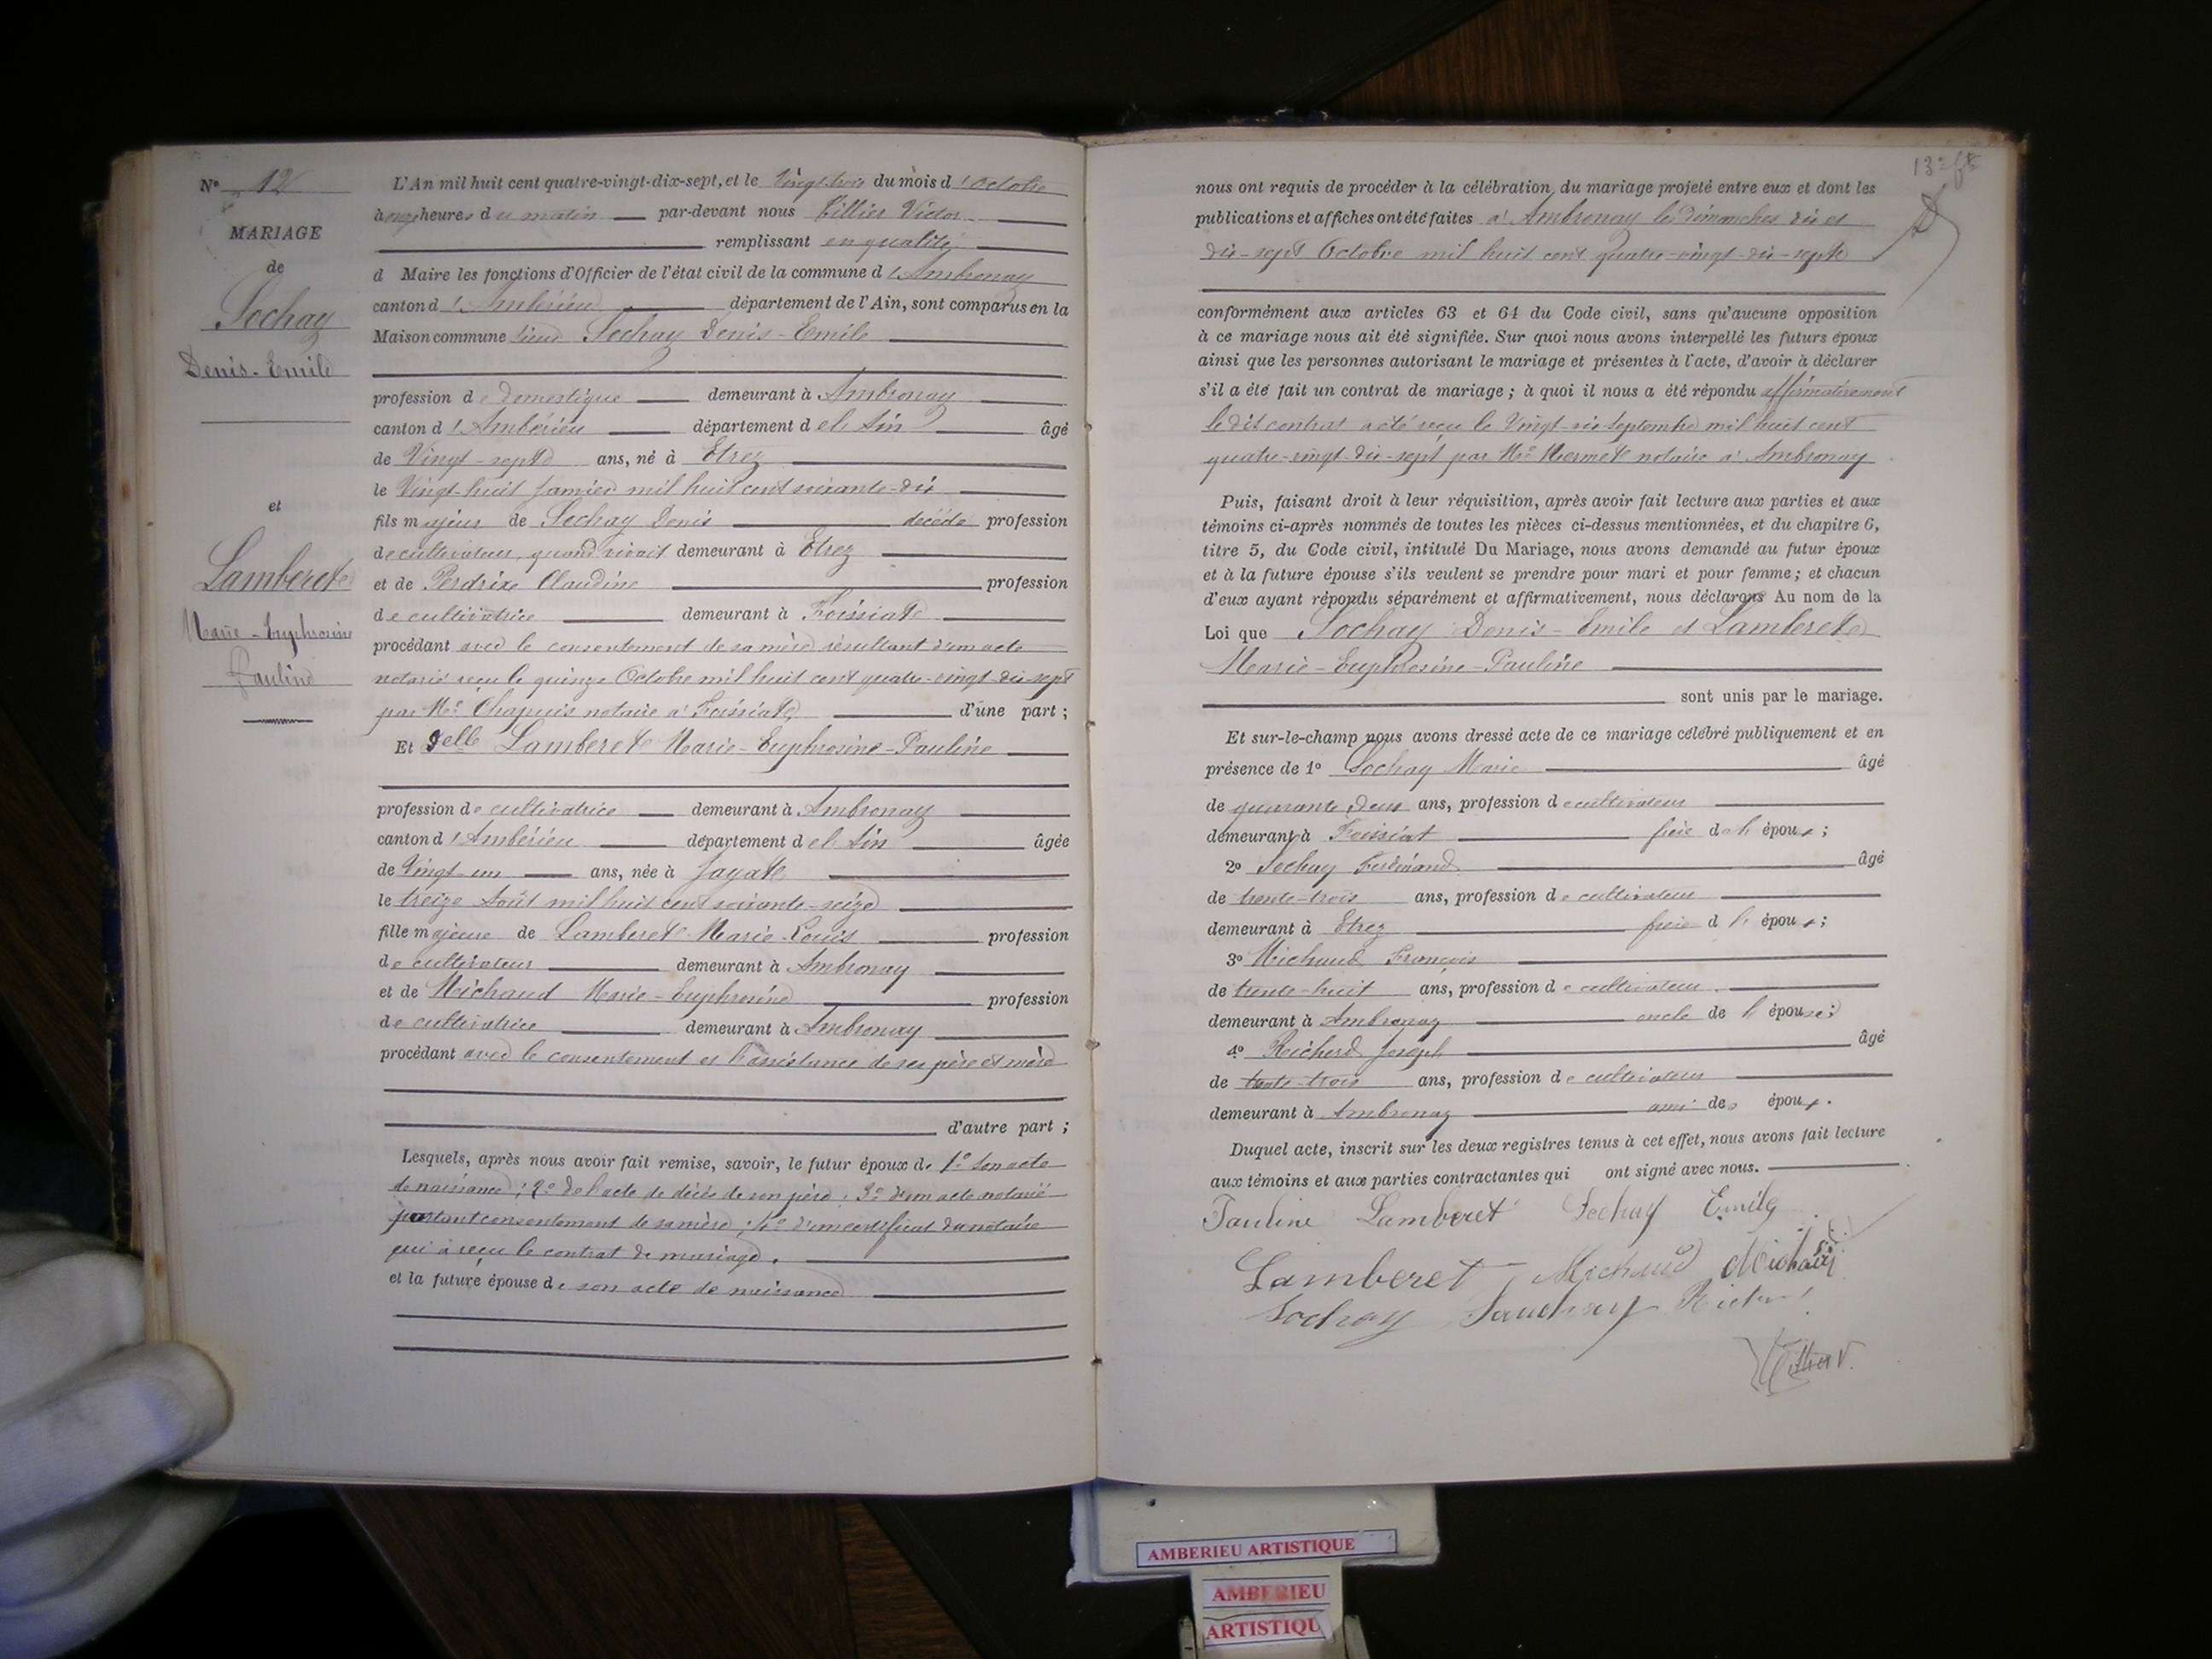 N° 12
MARIAGE
de
Sochay
Denis-Emile
et
Lamberet
Marie-Euphrosine
Pauline
L'An mil huit cent quatre-vingt-dix-sept, et le vingt-trois du mois d'Octobre
à onze heures du matin par-devant nous Tillier Victor
remplissant en qualité
d Maire les fonctions d'Officier de l'état civil de la commune d'Ambronay
canton d'Ambérieu département de l'Ain, sont comparus en la
Maison commune sieur Sochay Denis-Emile
profession de domestique demeurant à Ambronay
canton d'Ambérieu département de l'Ain âgé
de Vingt-sept ans, né à Etrez
le Vingt-huit Janvier mil huit cent soixante-dix
fils majeur de Sochay Denis décédé profession
de cultivateur, quand vivait demeurant à Etrez
et de Perdrix Claudine profession
de cultivatrice demeurant à Foissiat
procédant avec le consentement de sa mère résultant d'un acte
notarié reçu le quinze Octobre mil huit cent quatre-vingt-dix-sept
par Me Chapuis notaire à Foissiat d'une part ;
Et Delle Lamberet Marie-Euphrosine-Pauline
profession de cultivatrice demeurant à Ambronay
canton d'Ambérieu département de l'Ain âgée
de Vingt-un ans, née à Jayat
le treize Août mil huit cent soixante-seize
fille majeure de Lamberet Marie-Louis profession
de cultivateur demeurant à Ambronay
et de Michaud Marie-Euphrosine profession
de cultivatrice demeurant à Ambronay
procédant avec le consentement et l'assistance de ses père et mère
d'autre part ;
Lesquels, après nous avoir fait remise, savoir, le futur époux de 1° son acte
de naissance ; 2° de l'acte de décès de son père ; 3° d'un acte notarié
portant consentement de sa mère ; 4° d'un certificat du notaire
qui a reçu le contrat de mariage.
et la future épouse de son acte de naissance
nous ont requis de procéder à la célébration du mariage projeté entre eux et dont les
publications et affiches ont été faites à Ambronay les dimanches dix et
dix-sept Octobre mil huit cent quatre-vingt-dix-sept
conformément aux articles 63 et 64 du Code civil, sans qu'aucune opposition
à ce mariage nous ait été signifiée. Sur quoi nous avons interpellé les futurs époux
ainsi que les personnes autorisant le mariage et présentes à l'acte, d'avoir à déclarer
s'il a été fait un contrat de mariage ; à quoi il nous a été répondu affirmativement
le dit contrat a été reçu le Vingt-six Septembre mil huit cent
quatre-vingt-dix-sept par Me Mermet notaire à Ambronay
Puis, faisant droit à leur réquisition, après avoir fait lecture aux parties et aux
témoins ci-après nommés de toutes les pièces ci-dessus mentionnées, et du chapitre 6,
titre 5, du Code civil, intitulé Du Mariage, nous avons demandé au futur époux
et à la future épouse s'ils veulent se prendre pour mari et pour femme ; et chacun
d'eux ayant répondu séparément et affirmativement, nous déclarons Au nom de la
Loi que Sochay Denis-Emile et Lamberet
Marie-Euphrosine-Pauline
sont unis par le mariage.
Et sur-le-champ nous avons dressé acte de ce mariage célébré publiquement et en
présence de 1° Sochay Marie âgé
de quarante deux ans, profession de cultivateur
demeurant à Foissiat frère de l'époux ;
2° Sochay Ferdinand âgé
de trente-trois ans, profession de cultivateur
demeurant à Etrez frère d l'époux ;
3° Michaud François
de trente-huit ans, profession de cultivateur
demeurant à Ambronay oncle de l'épouse ;
4° Richerd Joseph âgé
de trente-trois ans, profession de cultivateur
demeurant à Ambronay ami des époux.
Duquel acte, inscrit sur les deux registres tenus à cet effet, nous avons fait lecture
aux témoins et aux parties contractantes qui ont signé avec nous.
Pauline Lamberet Sochay Emile
Lamberet Michaud Michaud
Sochay
Tillier V.
AMBERIEU ARTISTIQUE
AMBERIEU
ARTISTIQU